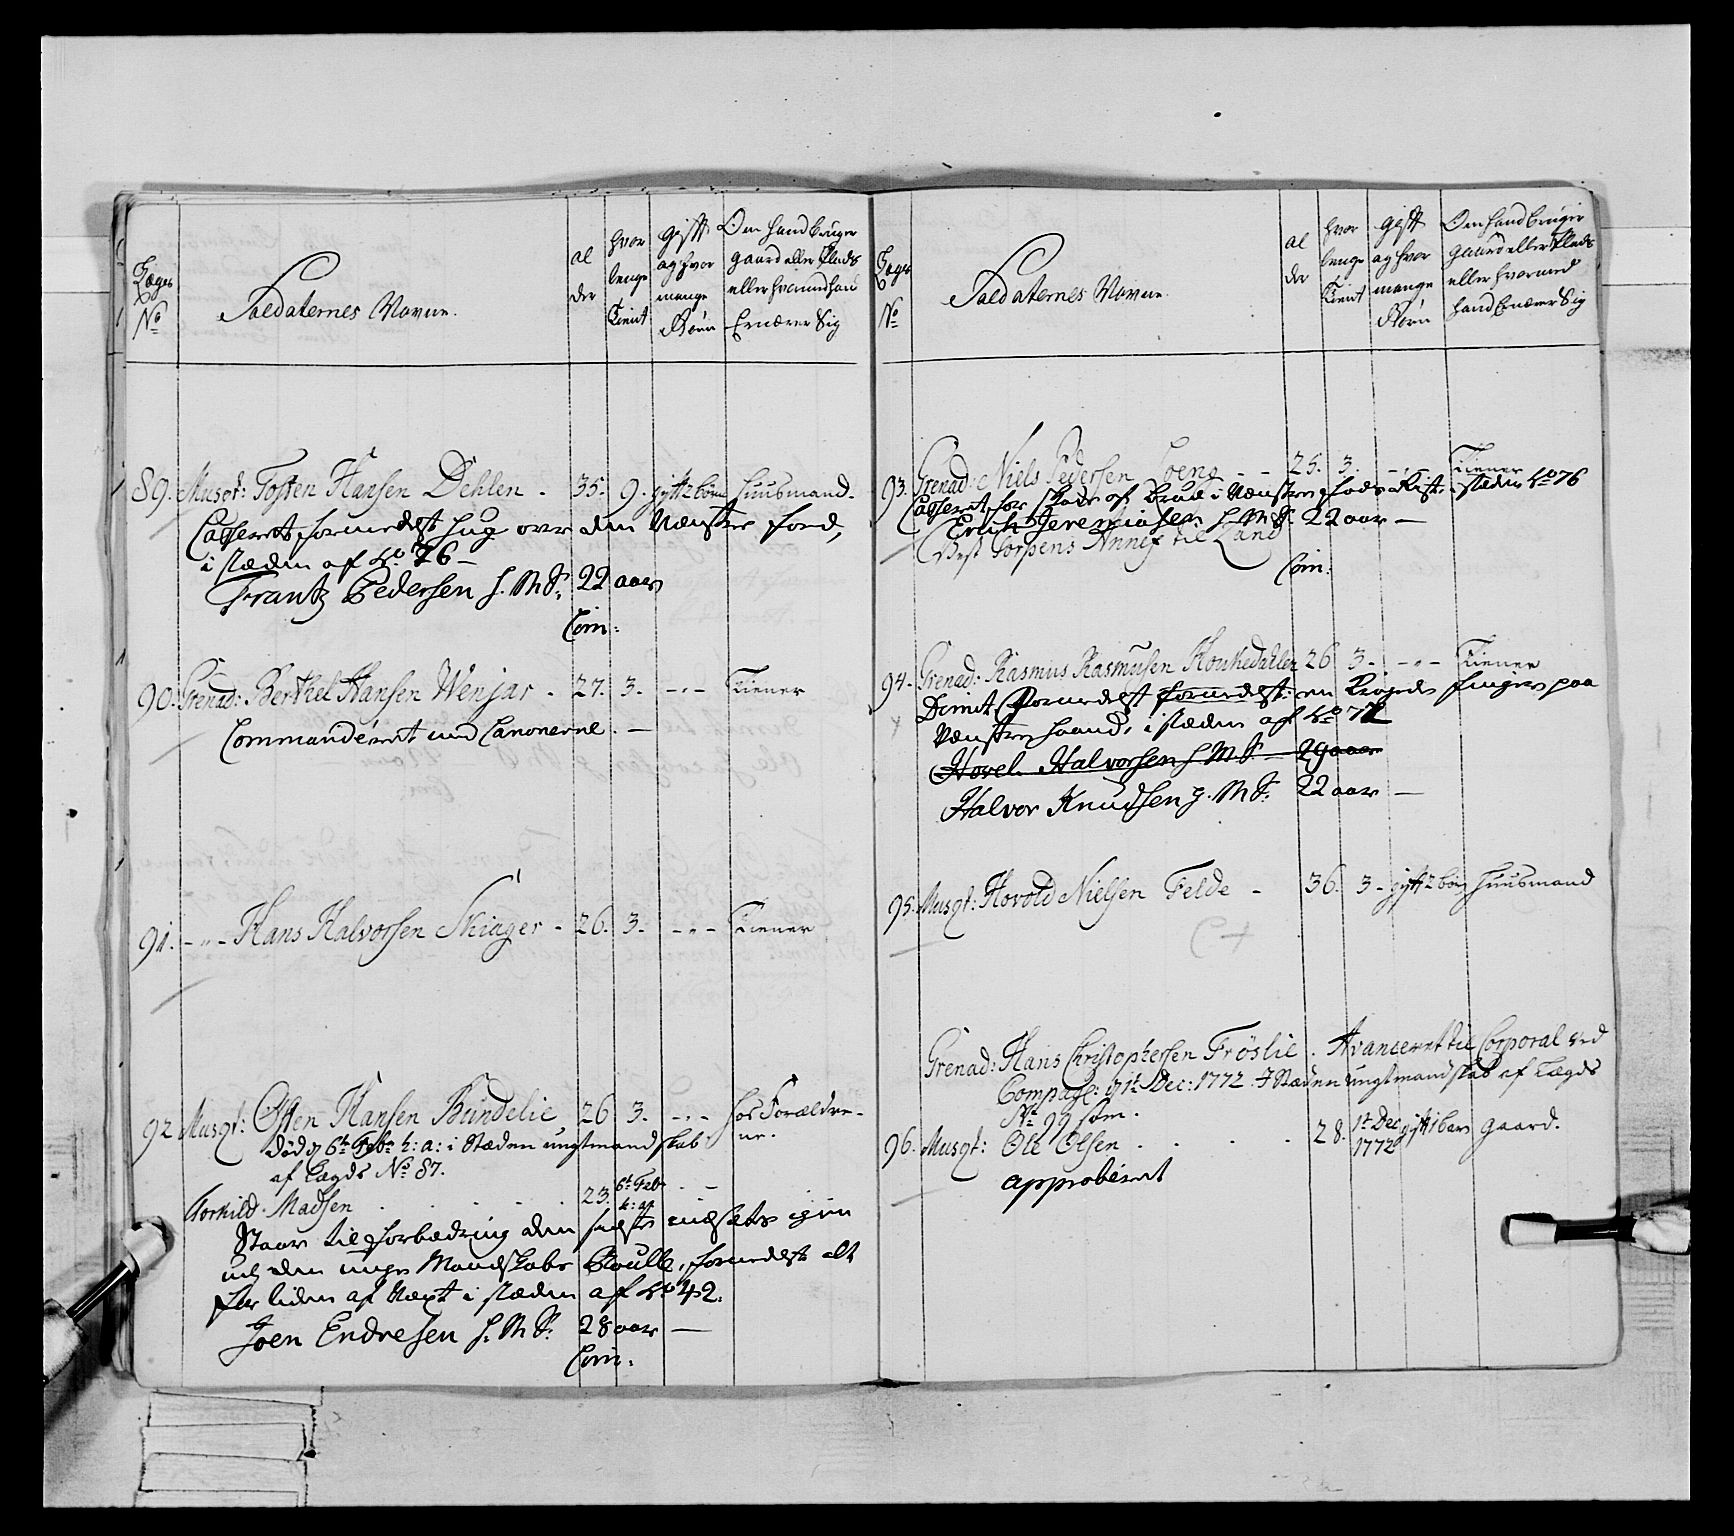 Lægs
No
Soldaternes Navne.
al
der
hvor
lenge
tient
gift
og hvor
mange
Børn
Om hand bruger
gaard eller Plads
eller hvormed hand
Ernærer Sig
89. Musqt: Tosten Hansen Dehlen - 35. 9. gift 2 børn Huusmand.
Casseret formedelst hug over den Venstre food,
i stæden af No 76 -
Frantz Pedersen g. M S: 22 aar
Com:
90. Grenad: Berthel Hansen Wenjar - 27. 3. -"- Tiener
Commanderet ved Canonerne. -
91. -"- Hans Halvorsen Skiager - 26. 3. -"- Tiener
92 Musqt: Osten Hansen Bündelie 26 3. -"- hos Forældre-
ne.
død d 6te Febr h: a: i Stæden ungtmandskab
af Lægds No 87.
Torkild Madsen . . . 23. 6te Feb: h: a: - -
Staar til forbedring den sidste udsættes igien
ud den unge Mandskabs Roulle, formedelst alt
for liden af Vext i stæden af No 42.
Joen Endresen g. M S: 28 aar -
Com:
Lægs
No
Soldaternes Navne.
al
der
hvor
lenge
tient
gift
og hvor
mange
Børn
Om hand bruger
gaard eller Plads
eller hvormed
hand Ernærer Sig
93. Grenad: Niels Pedersen Loeng - - 25. 3. -"- Tiener
Casseret for skade af Brud i Venstre fods Rist. i stæden No 76
Erich Jeremiasen g. M S. 22 aar -
Vest Torpens Annex til Land
Com:
94. Grenad: Rasmus Rasmusen Houkedahlen 26 3- -"- Tiener
Dimit: Formedelst formedelst: en Kroged finger paa
Venstre haand, i stæden af No 72
Hovel Halvorsen g M S - 29 aar
Halvor Knudsen g. M S: 22 aar -
95. Musqt: Hovold Nielsen Felde - 36. 3- gift 2 børn Huusmand
Grenad: Hans Christophersen Fröslie. Avanceret til Corporal ved
Compagl: d 1te Dec: 1772. I Stæden ungtmandskab af Lægds
No 99 som.
96. Musqt: Ole Olsen . . . . 28. 1te Dec 1772 gift 1 barn gaard.
approberet